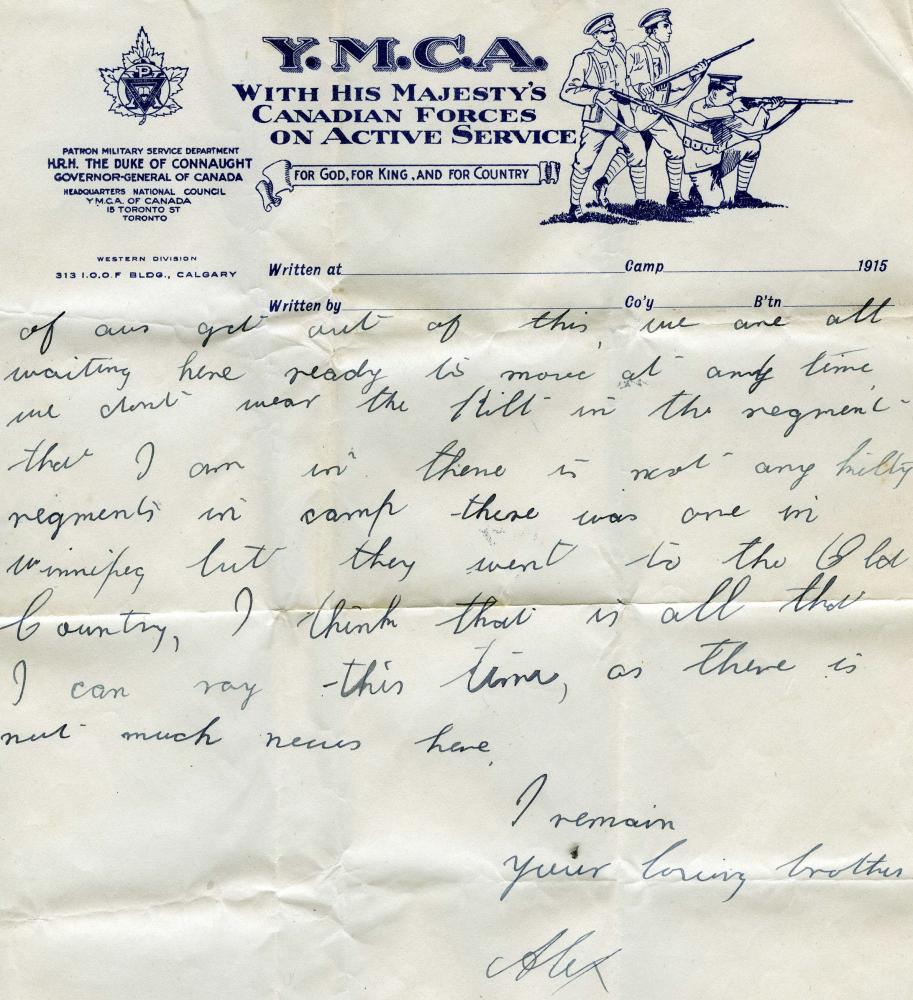 Y.M.C.A.
WITH HIS MAJESTY'S
CANADIAN FORCES
ON ACTIVE SERVICE
FOR GOD, FOR KING, AND FOR COUNTRY
PATRON MILITARY SERVICE DEPARTMENT
H.R.H. THE DUKE OF CONNAUGHT
GOVERNOR-GENERAL OF CANADA
HEADQUARTERS NATIONAL COUNCIL
Y.M.C.A. OF CANADA
15 TORONTO ST
TORONTO
WESTERN DIVISION
313 I.O.O.F BLDG., CALGARY
Written at Camp 1915
Written by Co'y B'tn
of aus get out of this, we are all
waiting here ready to move at any time
we dont wear the Kilt in the regment
that I am in there is not any kilty
regments in camp there was one in
winnipeg but they went to the Old
Country, I think that is all that
I can say this time, as there is
not much news here,
I remain
your loving brother
Alex